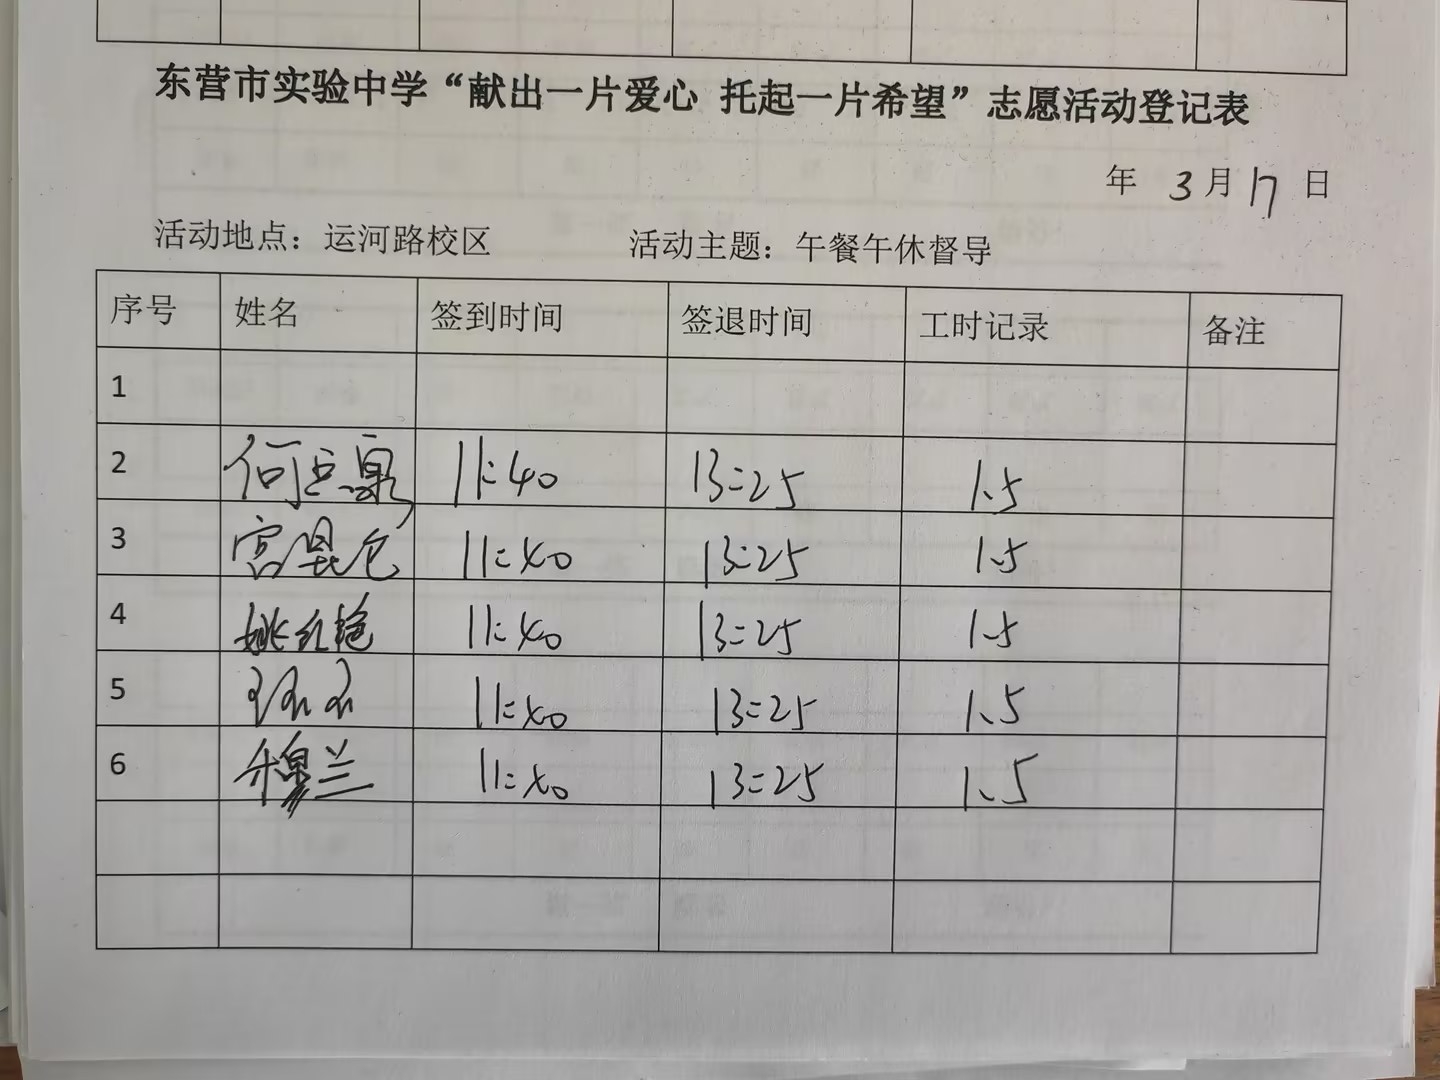 东营市实验中学“献出一片爱心 托起一片希望”志愿活动登记表
年 3月17日
活动地点：运河路校区 活动主题：午餐午休督导
序号 姓名 签到时间 签退时间 工时记录 备注
1
2 11:40 13:25 1.5
3 宫昆仑 11:40 13:25 1.5
4 姚红艳 11:40 13:25 1.5
5 11:40 13:25 1.5
6 穆兰 11:40 13:25 1.5